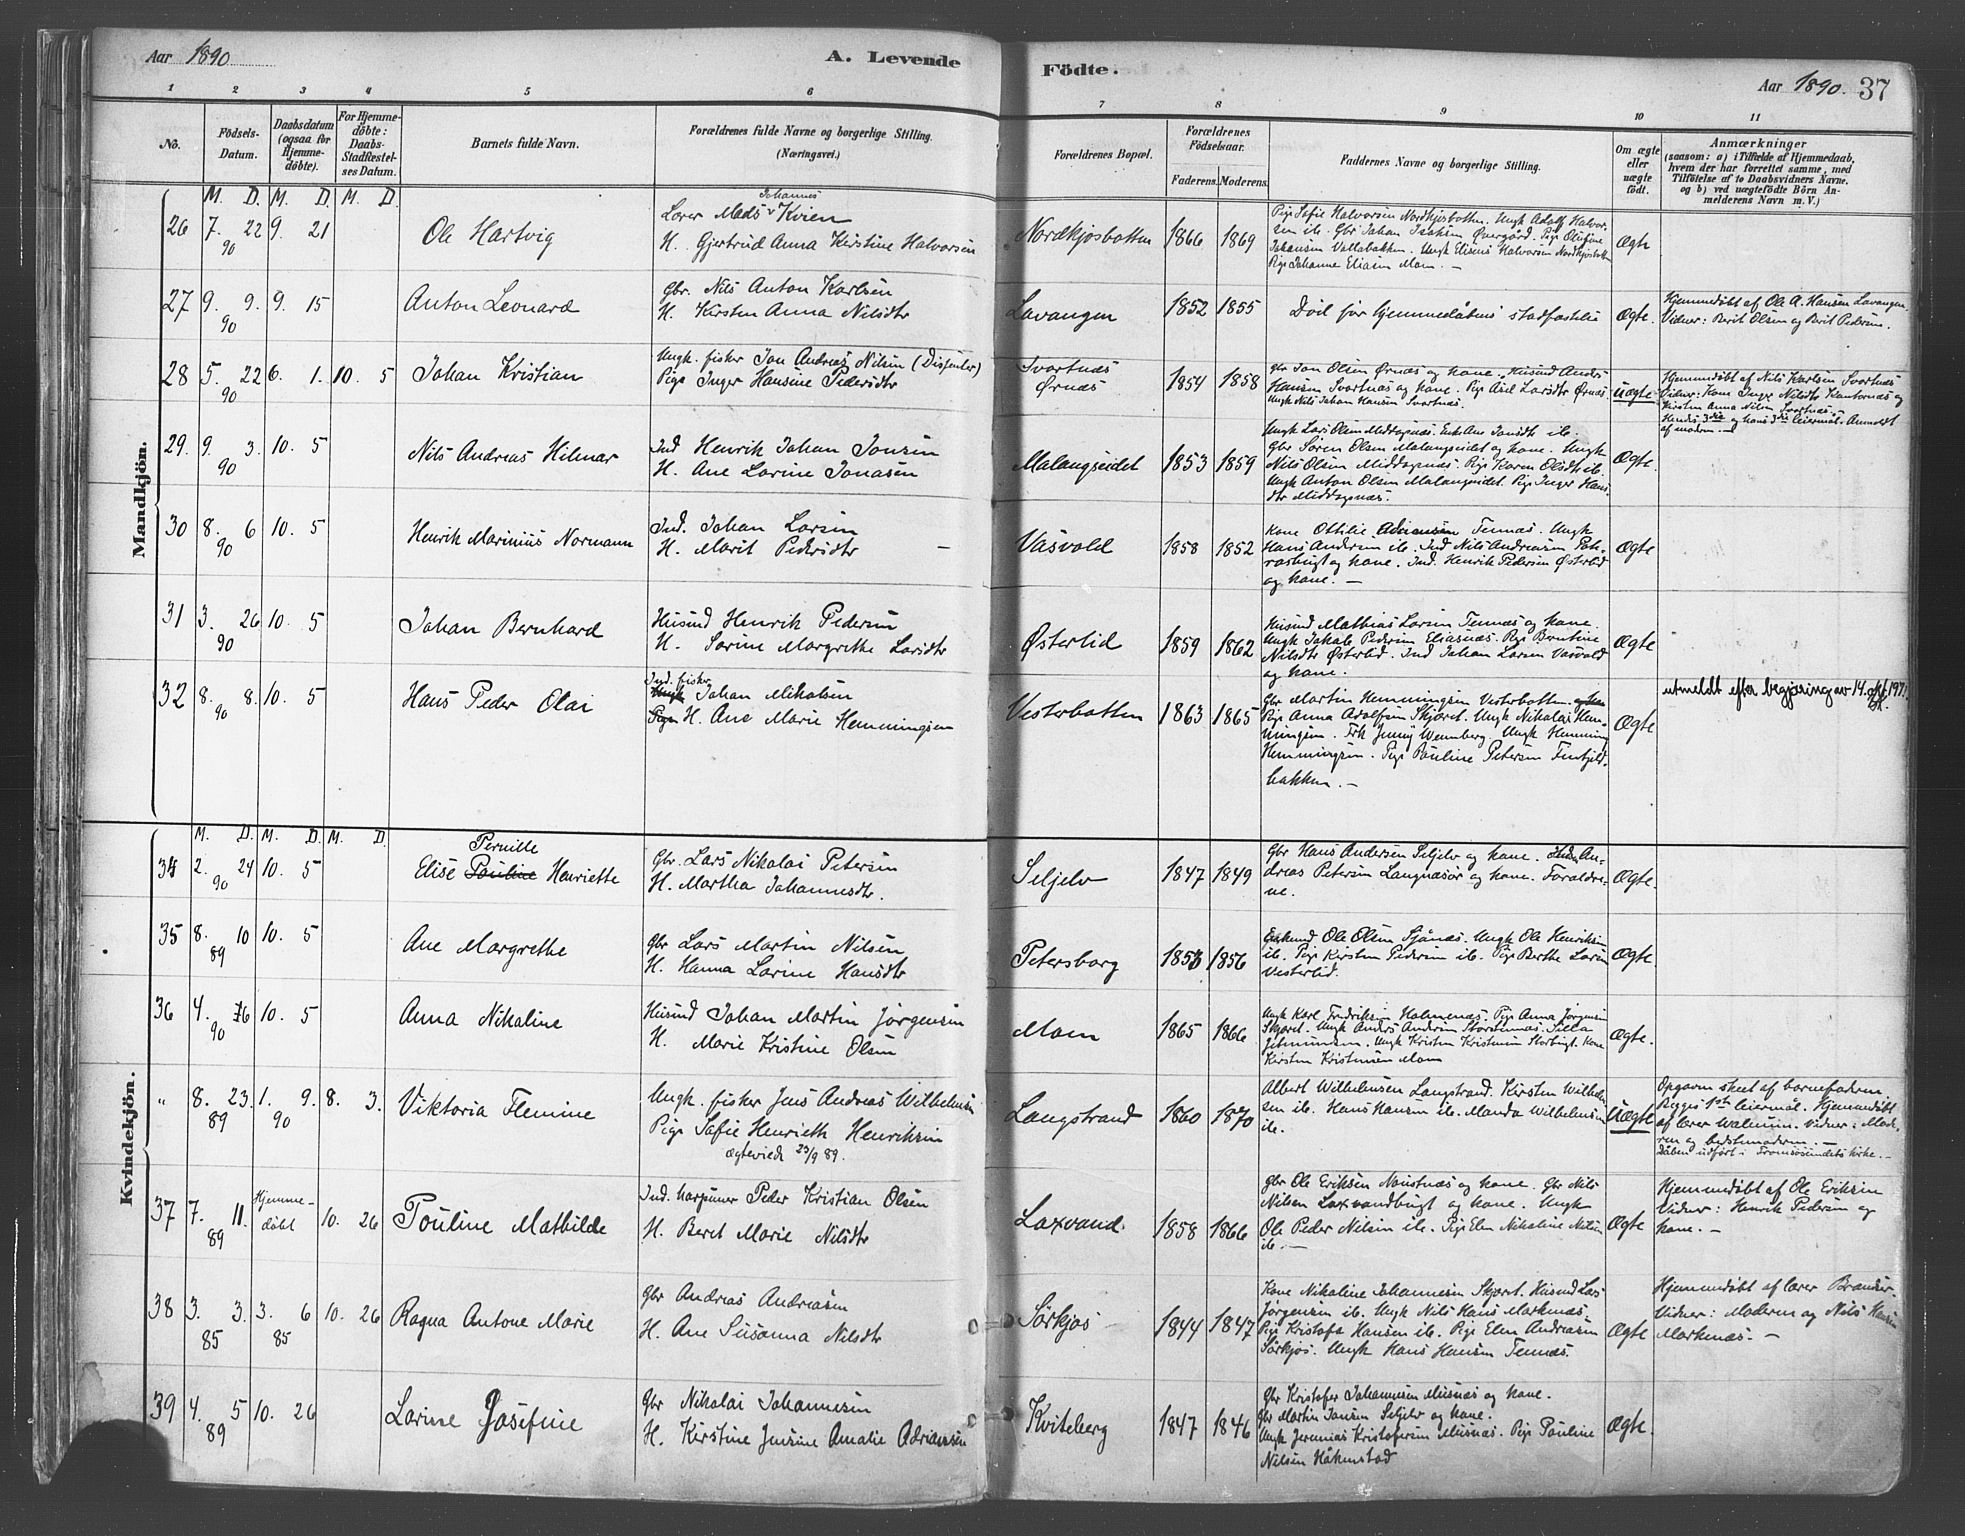 Aar 1890. A. Levende Födte. Aar 1890. 37
1 2 3 4 5 6 7 8 9 10 11
No. Födsels-Datum. Daabsdatum (ogsaa for Hjemme-döbte). For Hjemme-döbte: Daabs-Stadfæstel-ses Datum. Barnets fulde Navn. Forældrenes fulde Navne og borgerlige Stilling. (Næringsvei.) Forældrenes Bopæl. Forældrenes Födselsaar. Faderens. Moderens. Faddernes Navne og borgerlige Stilling. Om ægte eller uægte födt. Anmærkninger (saasom: a) i Tilfælde af Hjemmedaab, hvem der har forrettet samme, med Tilföielse af to Daabsvidners Navne, og b) ved uægtefödte Börn An-melderens Navn m. V.)
Mandkjön.
M. D. M. D. M. D.
26 7. 22 90 9. 21 Ole Hartvig Lærer Mads Johannes Kvien
H. Gjertrud Anna Kirstine Halvorsen Nordkjosbotten 1866 1869
Pige Sofie Halvorsen Nordkjosbotten. Ungk Adolf Halvor-
sen ib. Gbr Johan Isaksen Øvergård. Pige Olufine
Johansen Vallabakken. Ungk Elisius Halvorsen Nordkjosbotten
Pige Johanne Eliasen Moen. —
Ægte
27 9. 9. 90 9. 15 Anton Leonard Gbr. Nils Anton Karlsen
H. Kirsten Anna Nilsdtr Lavangen 1852 1855
Død før hjemmedåbens stadfæstelse
Ægte.
Hjemmedøbt af Ole A. Hansen Lavangen.
Vidner: Berit Olsen og Berit Pedersen.
28 5. 22 90 6. 1. 10. 5 Johan Kristian Ungk. fisker Jon Andreas Nilsen (Dissenter)
Pige Inger Hansine Pedersdtr Svartnæs
Ørnæs 1854 1858
Gbr Jon Olsen Ørnæs og kone. Husmd Anders
Hansen Svartnæs og kone. Pige Asel Larsdtr Ørnæs.
Ungk Nils Johan Hansen Svartnæs.
Uægte
Hjemmedøbt af Nils Karlsen Svartnæs
Vidner: Kone Inger Nilsdtr Kantornæs og
Kirsten Anna Nilsen Svartnæs.
Hendes 3die og hans 3die leiermål. Anmeldt
af modern. —
29. 9. 3. 90 10. 5 Nils Andreas Hilmar Ind Henrik Johan Jonsen
H. Ane Lorine Jonasen Malangseidet 1853 1859
Ungk Lars Olsen Middagsnæs. Enke Ane Jonsdtr ib.
Gbr Søren Olsen Malangseidet og kone. Ungk
Nils Olsen Middagsnæs. Pige Karen Olsdtr ib.
Ungk Anton Olsen Malangseidet. Pige Inger Hans-
dtr Middagsnæs.
Ægte.
30 8. 6 90 10. 5 Henrik Marinius Normann Ind. Johan Larsen
H. Marit Pedersdtr — Vasvold 1858 1852
Kone Ottilie Adriansen Tennæs. Ungk
Hans Andersen ib. Ind Nils Andreasen
og kone. Ind. Henrik Pedersen Østerlid
og kone. —
Ægte
31 3. 26 90 10. 5 Johan Bernhard Husmd Henrik Pedersen
H. Sørine Margrethe Larsdtr Østerlid 1859 1862
Husmd Mathias Larsen Tennæs og kone.
Ungk Jakob Pedersen Eliasnæs. Pige Berntine
Nilsdtr Østerlid. Ind Johan Larsen Vasvold
og kone.
Ægte
32 8. 8. 90 10. 5 Hans Peder Olai Ind. fisker Ungk Johan Mikalsen
Pige H. Ane Marie Hemmingsen Vesterbotten 1863 1865
Gbr Martin Hemmingsen Vesterbotten
Pige Anna Adolfsen Skjæret. Ungk Nikolai Hem-
mingsen. Frk Jenny Wennberg. Ungk Hemming
Hemmingsen. Pige Pauline Petersen Finfjeld-
bakken. —
Ægte
utmeldt efter begjæring av 14. okt.
Kvindekjön.
M. D. M. D. M. D.
34 2. 24 90 10. 5 Elise Pauline Pernille Henriette Gbr. Lars Nikolai Petersen
H. Martha Johannesdtr. Seljelv 1847 1849
Gbr Hans Andersen Seljelv og kone. Husmd An-
dreas Petersen Langnæsør og kone. Forældre-
ne.
Ægte.
35 8. 10 89 10. 5 Ane Margrethe Gbr Lars Martin Nilsen
H. Hanna Lorine Hansdtr Petersborg 1853 1856
Ole Olsen Sjånæs. Ungk Ole Henriksen
ib. Pige Kirsten Pedersen ib. Pige Berthe Larsen
Vesterlid.
Ægte
36 4. 16 90 10. 5 Anna Nikoline Husmd Johan Martin Jørgensen
H. Marie Kristine Olsen Moen 1865 1866
Ungk Karl Fredriksen Holmenæs. Pige Anna Jørgensen
Skjæret. Ungk Anders Andersen Storstennæs.
Ungk Kristen Kristensen Storbugt. Kone
Kirsten Kristensen Moen
Ægte.
" 8. 23. 89 1. 9. 90 8. 3. Viktoria Flemine Ungk. fisker Jens Andreas Wilhelmsen
Pige Sofie Henrieth Henriksen
Ægteviede 23/9 89. Langstrand 1860 1870
Albert Wilhelmsen Langstrand. Kirsten Wilhelm-
sen ib. Hans Hansen ib. Manda Wilhelmsen
ib.
Uægte
Opgaven skeet af barnefaderen
Begges 1ste leiermål. Hjemmedøbt
af lærer Walnum. Vidner: Mode-
ren og bedstemoderen. —
Dåben udført i Tromsøsundets kirke. —
37 7. 11. 89 Hjemme-
døbt 10. 26 Pouline Mathilde Ind. harpuner Peder Kristian Olsen
H. Beret Marie Nilsdtr Laxvand 1858 1866
Gbr Ole Eriksen Naustnæs og kone. Gbr Nils
Nilsen Laxvandbugt og kone. Ungk
Ole Peder Nilsen ib. Pige Elen Nikoline Nilsen
ib. —
Ægte
Hjemmedøbt af Ole Eriksen
Vidner: Henrik Pedersen og
kone. —
38 3. 3. 85 3. 6 85 10. 26 Ragna Antone Marie Gbr Andreas Andreasen
H. Ane Susanna Nilsdtr Sørkjos 1844 1847
Kone Nikoline Johannesen Skjæret. Husmd Lars
Jørgensen ib. Ungk Nils Hans Markenæs.
Pige Kristofa Hansen ib. Pige Elen Andreasen
Sørkjos. Ungk Hans Hansen Tennæs.
Ægte
Hjemmedøbt af lærer Brander.
Vidner: Modern og Nils Hansen
Markenæs. —
39 4. 5 89 10. 26 Lorine Josefine Gbr Nikolai Johannesen
H. Kirstine Jensine Amalie Adriansen Kviteberg 1847 1846
Gbr Kristofer Johannesen Meisnæs og kone.
Gbr Martin Jansen Seljelv og kone.
Ungk Jeremias Kristofersen Meisnæs. Pige Pauline
Nilsen Håkenstad
Ægte.